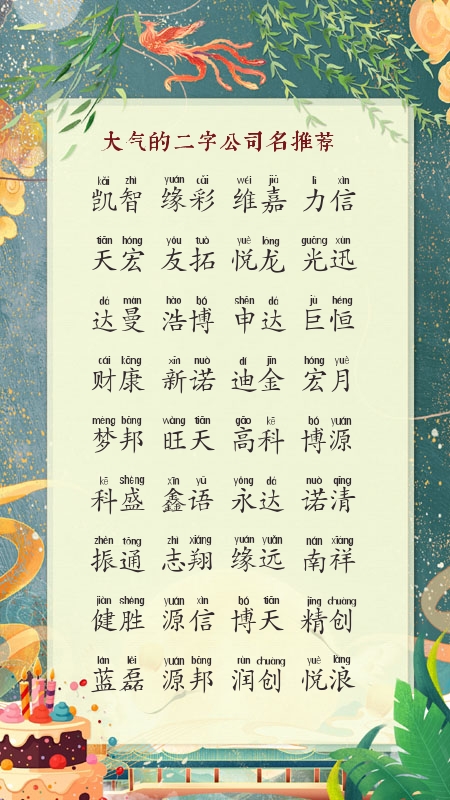 大气的二字公司名推荐
kǎi zhì yuán cǎi wéi jiā lì xìn
凯智 缘彩 维嘉 力信
tiān hóng yǒu tuò yuè lóng guāng xùn
天宏 友拓 悦龙 光迅
dá màn hào bó shēn dá jù héng
达曼 浩博 申达 巨恒
cái kāng xīn nuò dí jīn hóng yuè
财康 新诺 迪金 宏月
mèng bāng wàng tiān gāo kē bó yuán
梦邦 旺天 高科 博源
kē shèng xīn yǔ yǒng dá nuò qīng
科盛 鑫语 永达 诺清
zhèn tōng zhì xiáng yuán yuǎn nán xiáng
振通 志翔 缘远 南祥
jiàn shèng yuán xìn bó tiān jīng chuàng
健胜 源信 博天 精创
lán lěi yuán bāng rùn chuàng yuè làng
蓝磊 源邦 润创 悦浪